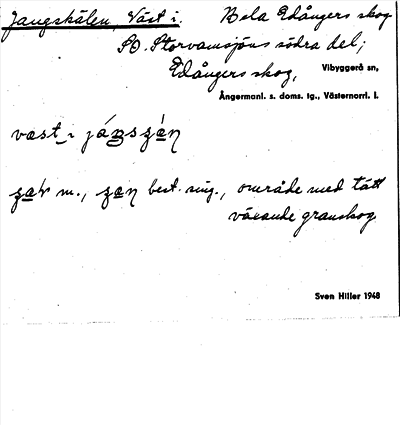 Jangskälen, Väst i. Bela Edångers skog
SO. Storvamsjöns södra del;
Edångers skog,
Vibyggerå sn,
Ångermanl. s. doms. tg., Västernorrl. l.
väst i
m., best. sing., område med tätt
växande granskog
Sven Hiller 1948